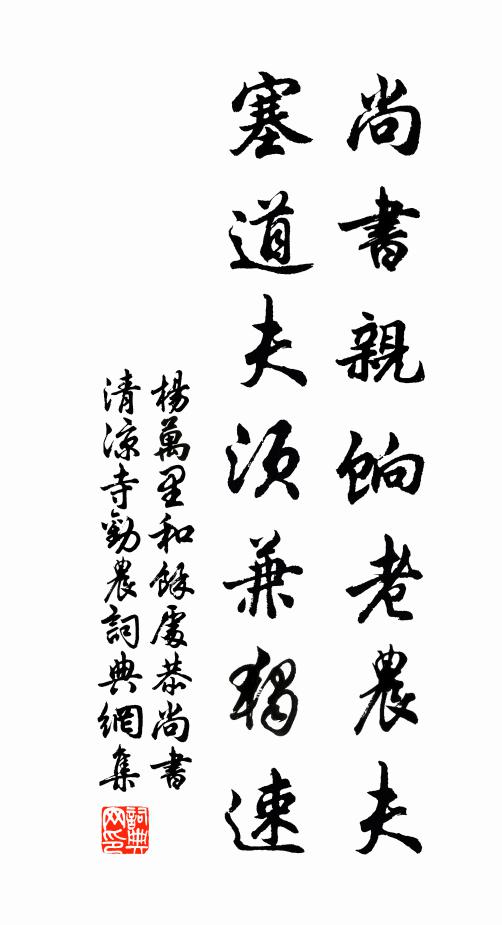 尚書親餉老農夫
塞道夫須兼獨速
楊萬里和餘處恭尚書
清涼寺勸農詞典網集
詞典网印